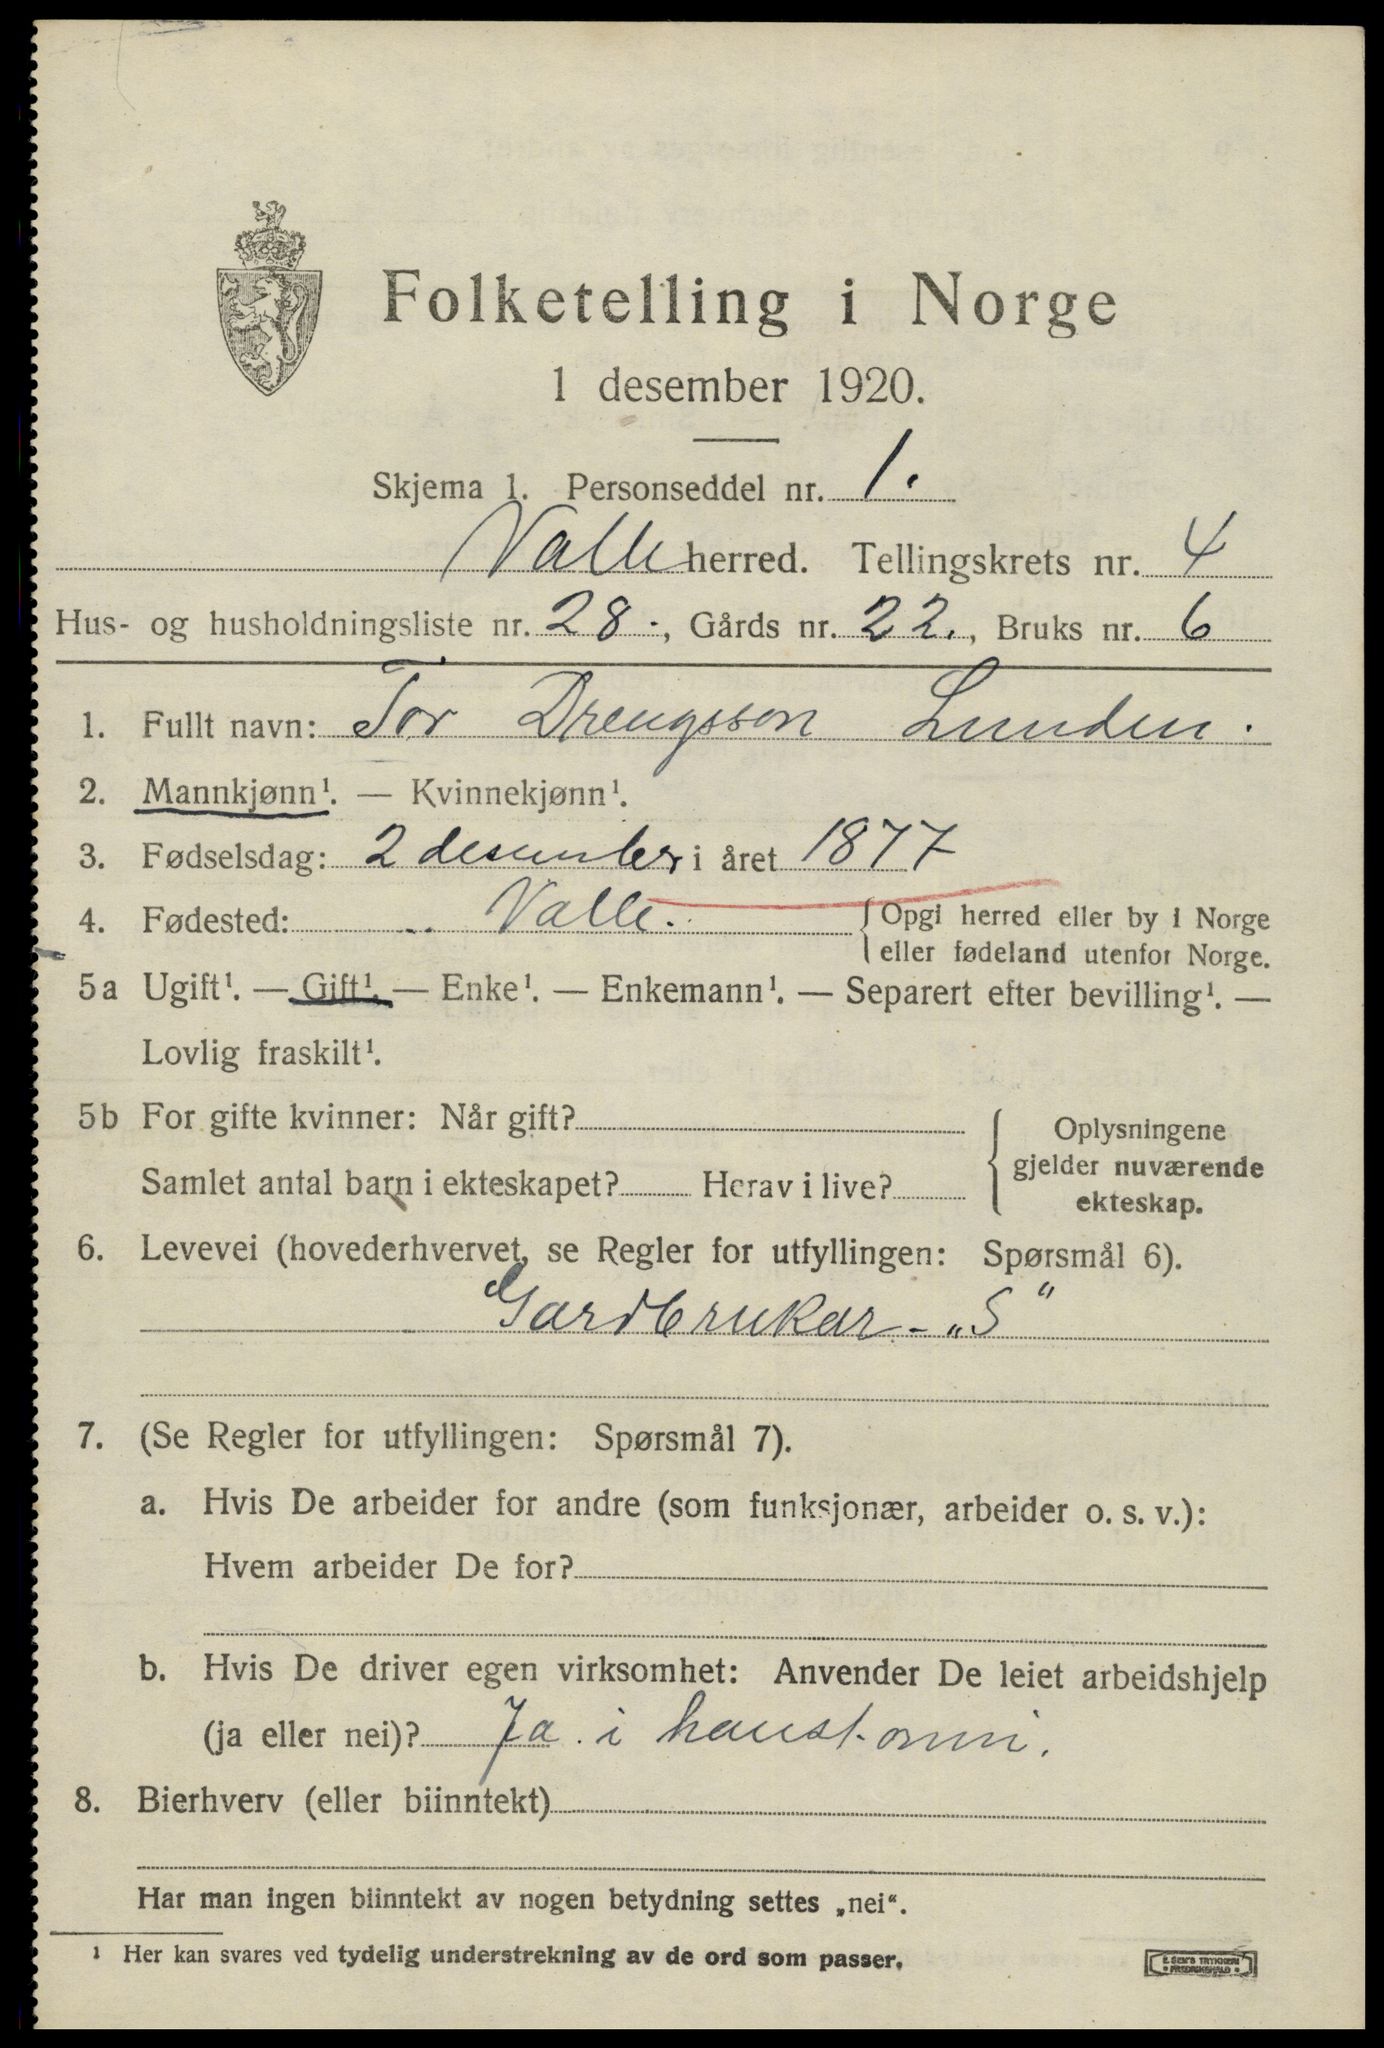 Folketelling i Norge
1 desember 1920.
Skjema 1. Personseddel nr. 1.
Valle herred. Tellingskrets nr. 4
Hus- og husholdningsliste nr. 28., Gårds nr. 22., Bruks nr. 6
1. Fullt navn: Tor Drengsson Lunden.
2. Mannkjønn¹. — Kvinnekjønn¹.
3. Fødselsdag: 2 desember i året 1877
4. Fødested: Valle. {Opgi herred eller by i Norge
eller fødeland utenfor Norge.
5a Ugift¹. — Gift¹. — Enke¹. — Enkemann¹. — Separert efter bevilling¹. —
Lovlig fraskilt¹.
5b For gifte kvinner: Når gift?
Samlet antal barn i ekteskapet? Herav i live?
Oplysningene
gjelder nuværende
ekteskap.
6. Levevei (hovederhvervet, se Regler for utfyllingen: Spørsmål 6).
Gardbrukar - „S“
7. (Se Regler for utfyllingen: Spørsmål 7).
a. Hvis De arbeider for andre (som funksjonær, arbeider o. s. v.):
Hvem arbeider De for?
b. Hvis De driver egen virksomhet: Anvender De leiet arbeidshjelp
(ja eller nei)? Ja i haustonni.
8. Bierhverv (eller biinntekt)
Har man ingen biinntekt av nogen betydning settes „nei“.
¹ Her kan svares ved tydelig understrekning av de ord som passer.
E. SEM'S TRYKKERI
FREDRIKSHALD